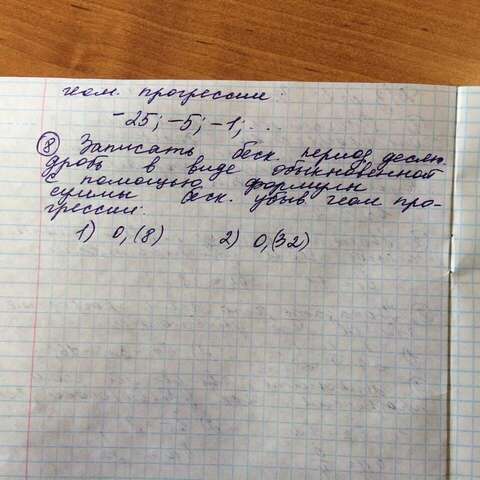 геом. прогрессии:
-25; -5; -1; ...
⑧ Записать беск. период. десят.
дробь в виде обыкновенной
с помощью формулы
суммы беск. убыв геом про-
грессии:
1) 0,(8) 2) 0,(32)